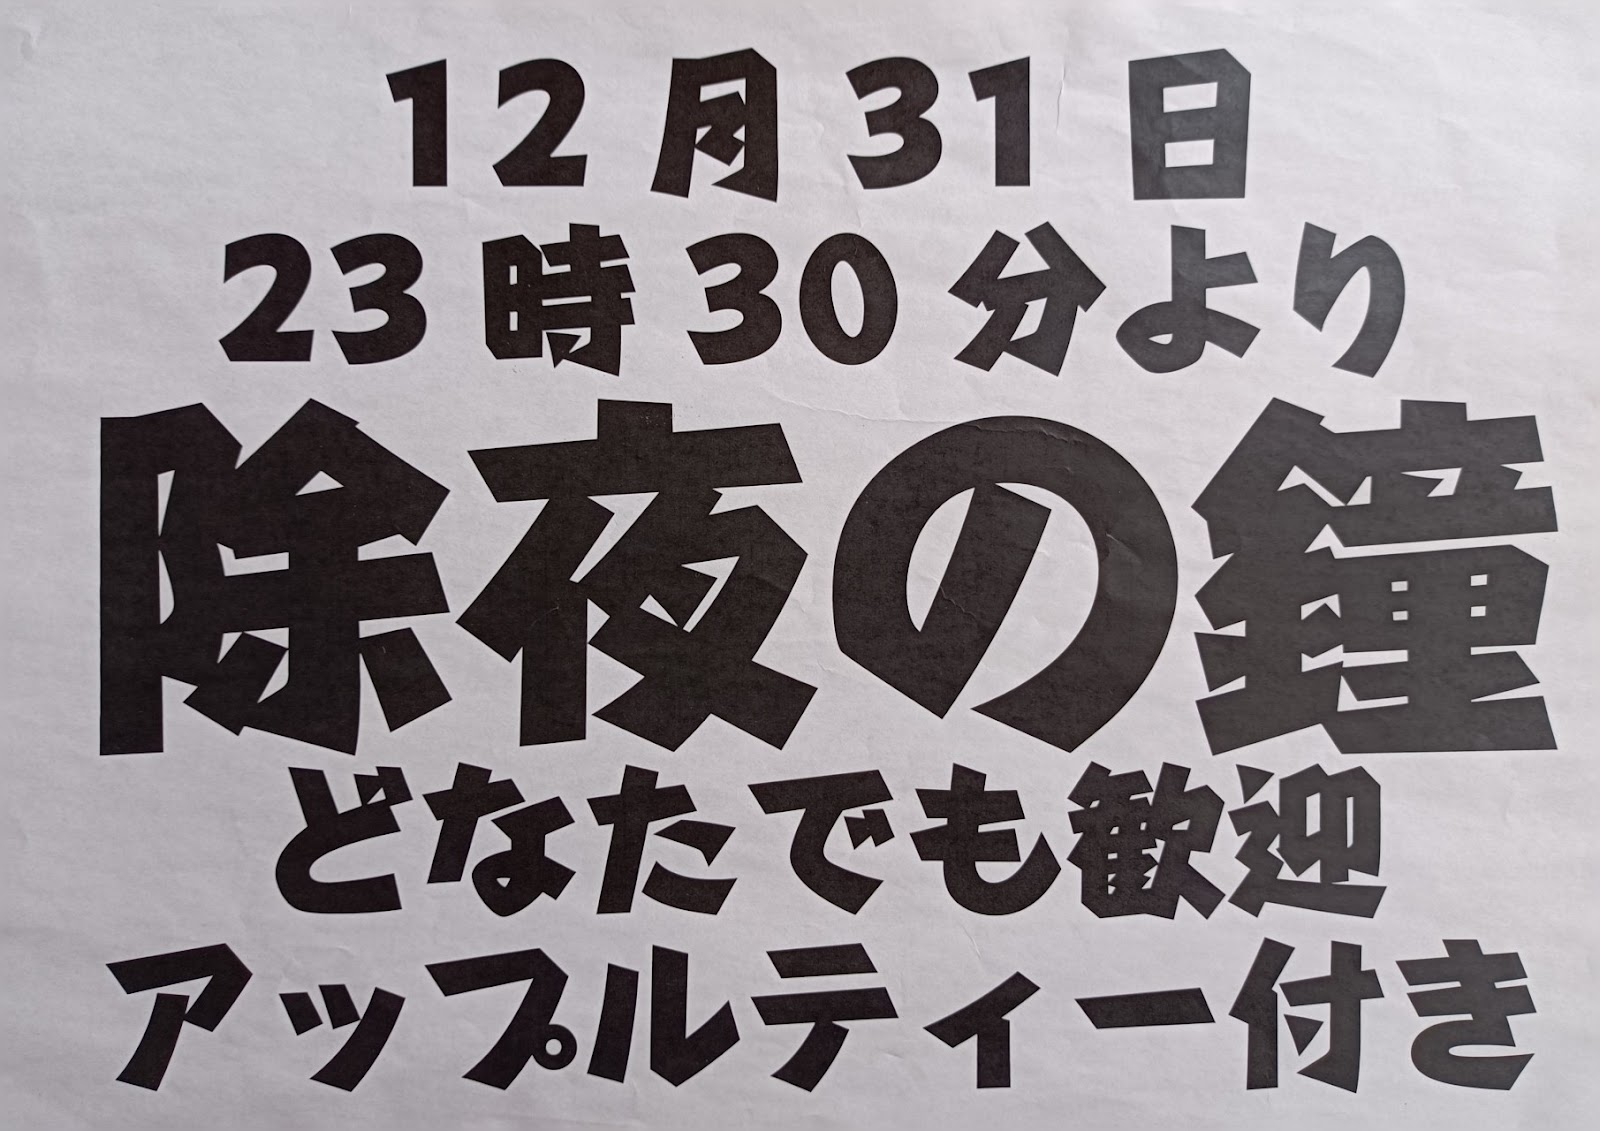 12月31日
23時30分より
除夜の鐘
どなたでも歓迎
アップルティー付き